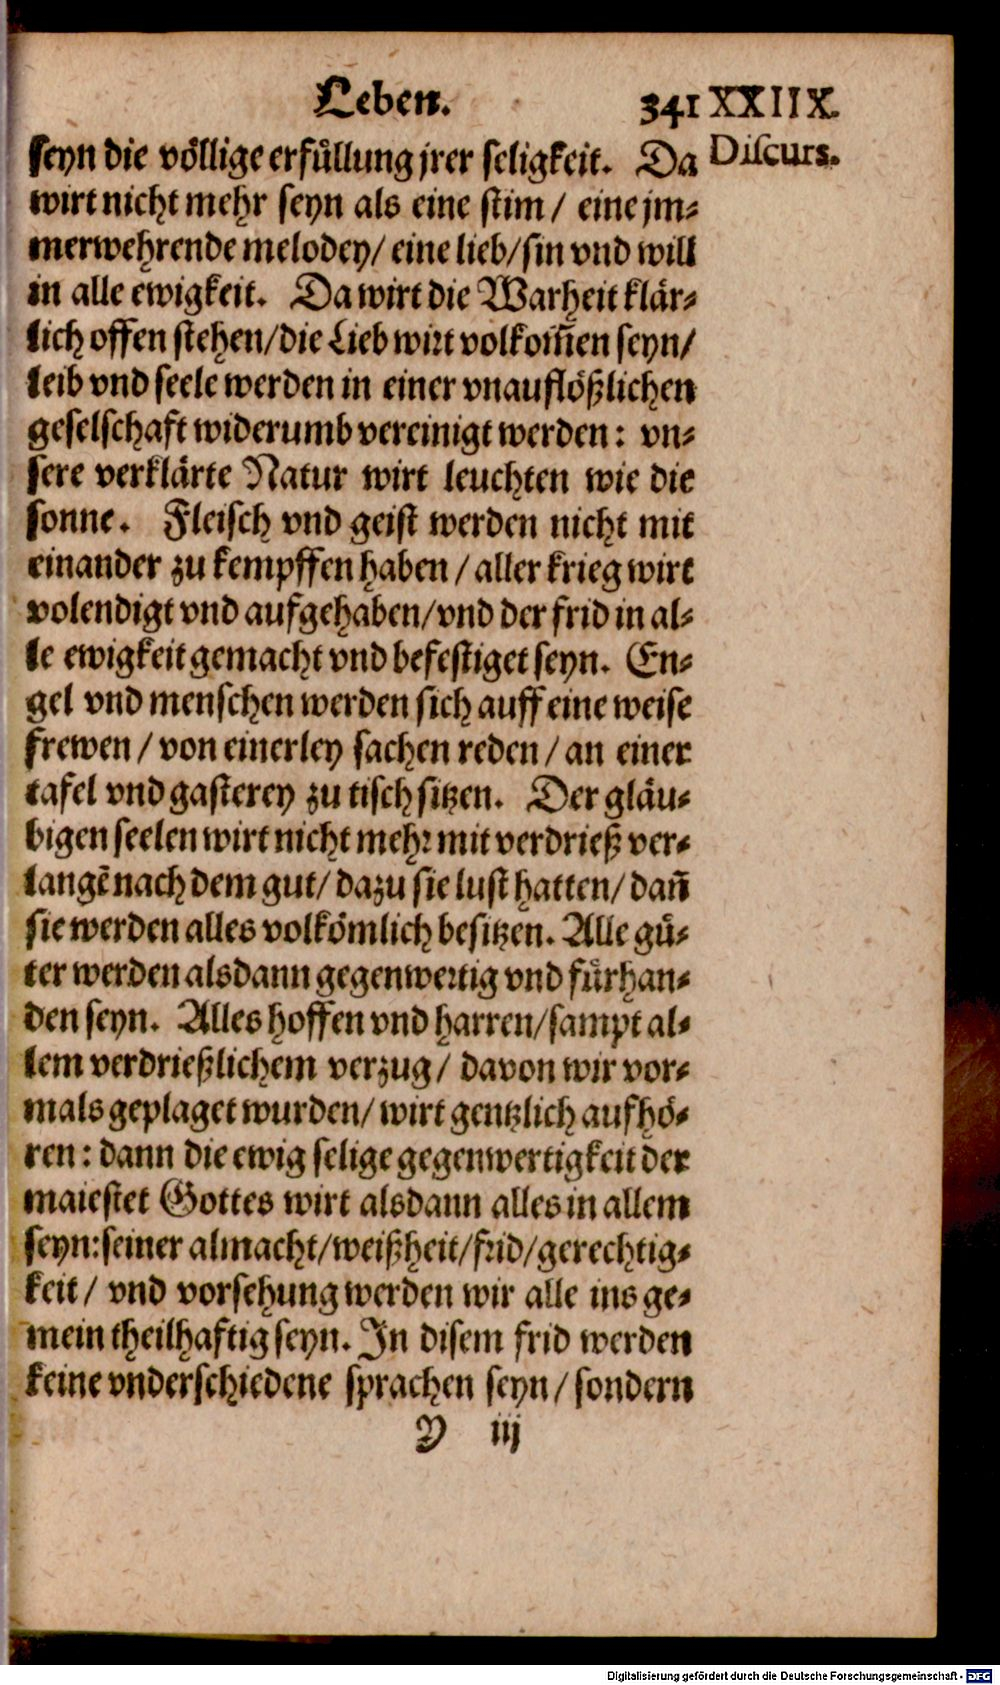 Leben. 341 XXIIX.
Discurs.
seyn die völlige erfüllung jrer seligkeit. Da
wirt nicht mehr seyn als eine stim / eine jm-
merwehrende melodey/ eine lieb/ sin vnd will
in alle ewigkeit. Da wirt die Warheit klär-
lich offen stehen/die Lieb wirt volkom̃en seyn/
leib vnd seele werden in einer vnauflößlichen
geselschaft widerumb vereinigt werden: vn-
sere verklärte Natur wirt leuchten wie die
sonne. Fleisch vnd geist werden nicht mit
einander zu kempffen haben / aller krieg wirt
volendigt vnd aufgehaben/vnd der frid in al-
le ewigkeit gemacht vnd befestiget seyn. En-
gel vnd menschen werden sich auff eine weise
frewen / von einerley sachen reden / an einer
tafel vnd gasterey zu tisch sitzen. Der gläu-
bigen seelen wirt nicht mehr mit verdrieß ver-
langẽ nach dem gut/ dazu sie lust hatten/ dañ
sie werden alles volkömlich besitzen. Alle gü-
ter werden alsdann gegenwertig vnd fürhan-
den seyn. Alles hoffen vnd harren/sampt al-
lem verdrießlichem verzug / davon wir vor-
mals geplaget wurden/ wirt gentzlich aufhö-
ren: dann die ewig selige gegenwertigkeit der
maiestet Gottes wirt alsdann alles in allem
seyn: seiner almacht/weißheit/frid/gerechtig-
keit / vnd vorsehung werden wir alle ins ge-
mein theilhaftig seyn. In disem frid werden
keine vnderschiedene sprachen seyn / sondern
Y iij
Digitalisierung gefördert durch die Deutsche Forschungsgemeinschaft - DFG